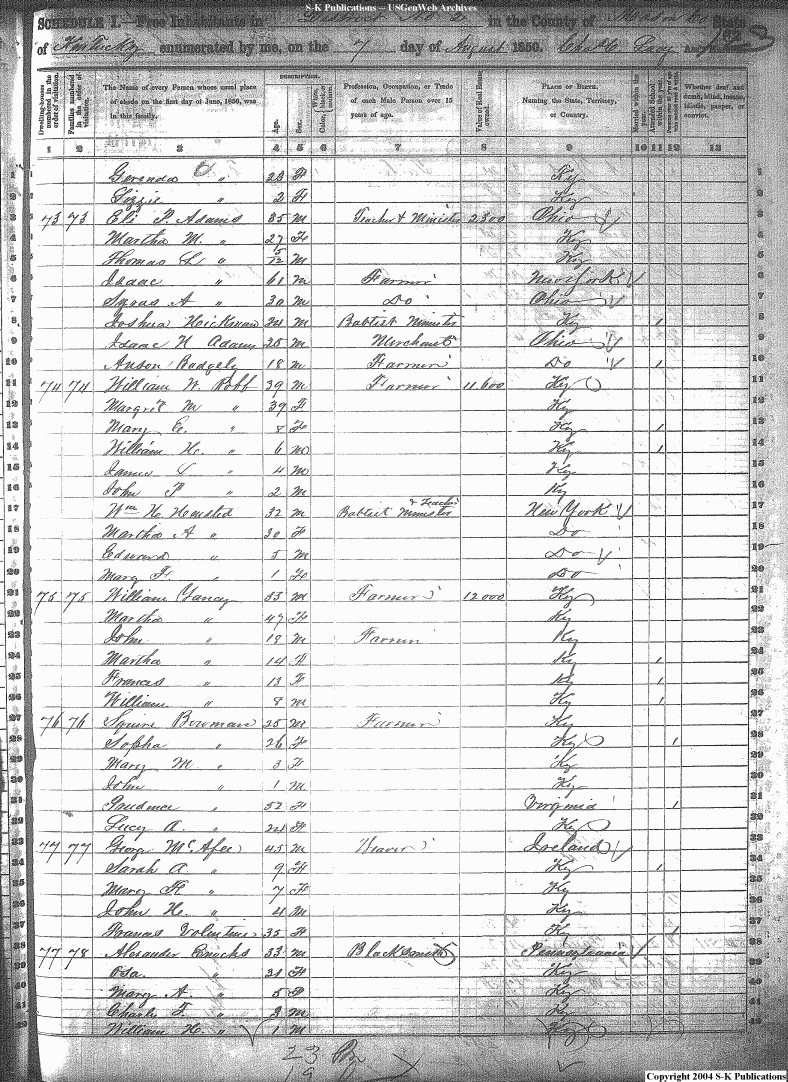 S-K Publications – USGenWeb Archives
SCHEDULE I.—Free Inhabitants in District No 2 in the County of Mason Co State
of Kentucky enumerated by me, on the 7 day of August 1850.
Dwelling-houses numbered in the order of visitation.
Families numbered in the order of visitation.
The Name of every Person whose usual place of abode on the first day of June, 1850, was in this family.
DESCRIPTION.
Age.
Sex.
Color,
Profession, Occupation, or Trade of each Male Person over 15 years of age.
Value of Real Estate owned.
PLACE OF BIRTH. Naming the State, Territory, or Country.
Married within the year.
Attended School within the year.
Whether deaf and dumb, blind, insane, idiotic, pauper, or convict.
1 2 3 4 5 6 7 8 9 10 11 12 13
1 " 23 F Ky
2 Lizzie " 2 F Ky
3 73 73 Eli P. Adams 35 M Teacher & Minister 2300 Ohio
4 Martha M. " 27 F Ky
5 Thomas L " 5/12 M Ky
6 Isaac " 61 M Farmer New York
7 A " 30 M Do Ohio
8 Joshua Hickman 24 M Baptist Minister Ky 1
9 Isaac N Adams 25 M Merchant Ohio
10 Anson Badgely 18 M Farmer Do 1
11 74 74 William W. Robb 39 M Farmer 11.600 Ky
12 Margret M " 39 F Ky
13 Mary E. " 8 F Ky 1
14 William H. " 6 M Ky 1
15 James " 4 M Ky
16 John P " 2 M Ky
17 Wm H. Hemsted 32 M Baptist Minister & Teacher New York
18 Martha A " 30 F Do
19 Edward " 5 M Do
20 Mary " 1 F Do
21 75 75 William Yancy 53 M Farmer 12000 Ky
22 Martha " 47 F Ky
23 John " 18 M Farmer Ky
24 Martha " 14 F Ky 1
25 Frances " 13 F Ky 1
26 William " 8 M Ky 1
27 76 76 Squire Bowman 25 M Farmer Ky
28 Sopha " 26 F Ky 1
29 Mary M " 3 F Ky
30 John " 1 M Ky
31 Prudence " 52 F Virginia 1
32 Lucy A. " 24 F Ky
33 77 77 Georg McAfee 45 M Weaver Ireland
34 Sarah A. " 9 F Ky 1
35 Mary " 7 F Ky
36 John H. " 4 M Ky
37 Frances Volentine 35 F Ky 1
38 77 78 Alexander Enochs 33 M Blacksmith Pennsylvania
39 " 21 F Ky
40 Mary A " 5 F Ky
41 Charles F. " 2 M Ky
42 William H. " 1 M Ky
23
19
Copyright 2004 S-K Publications